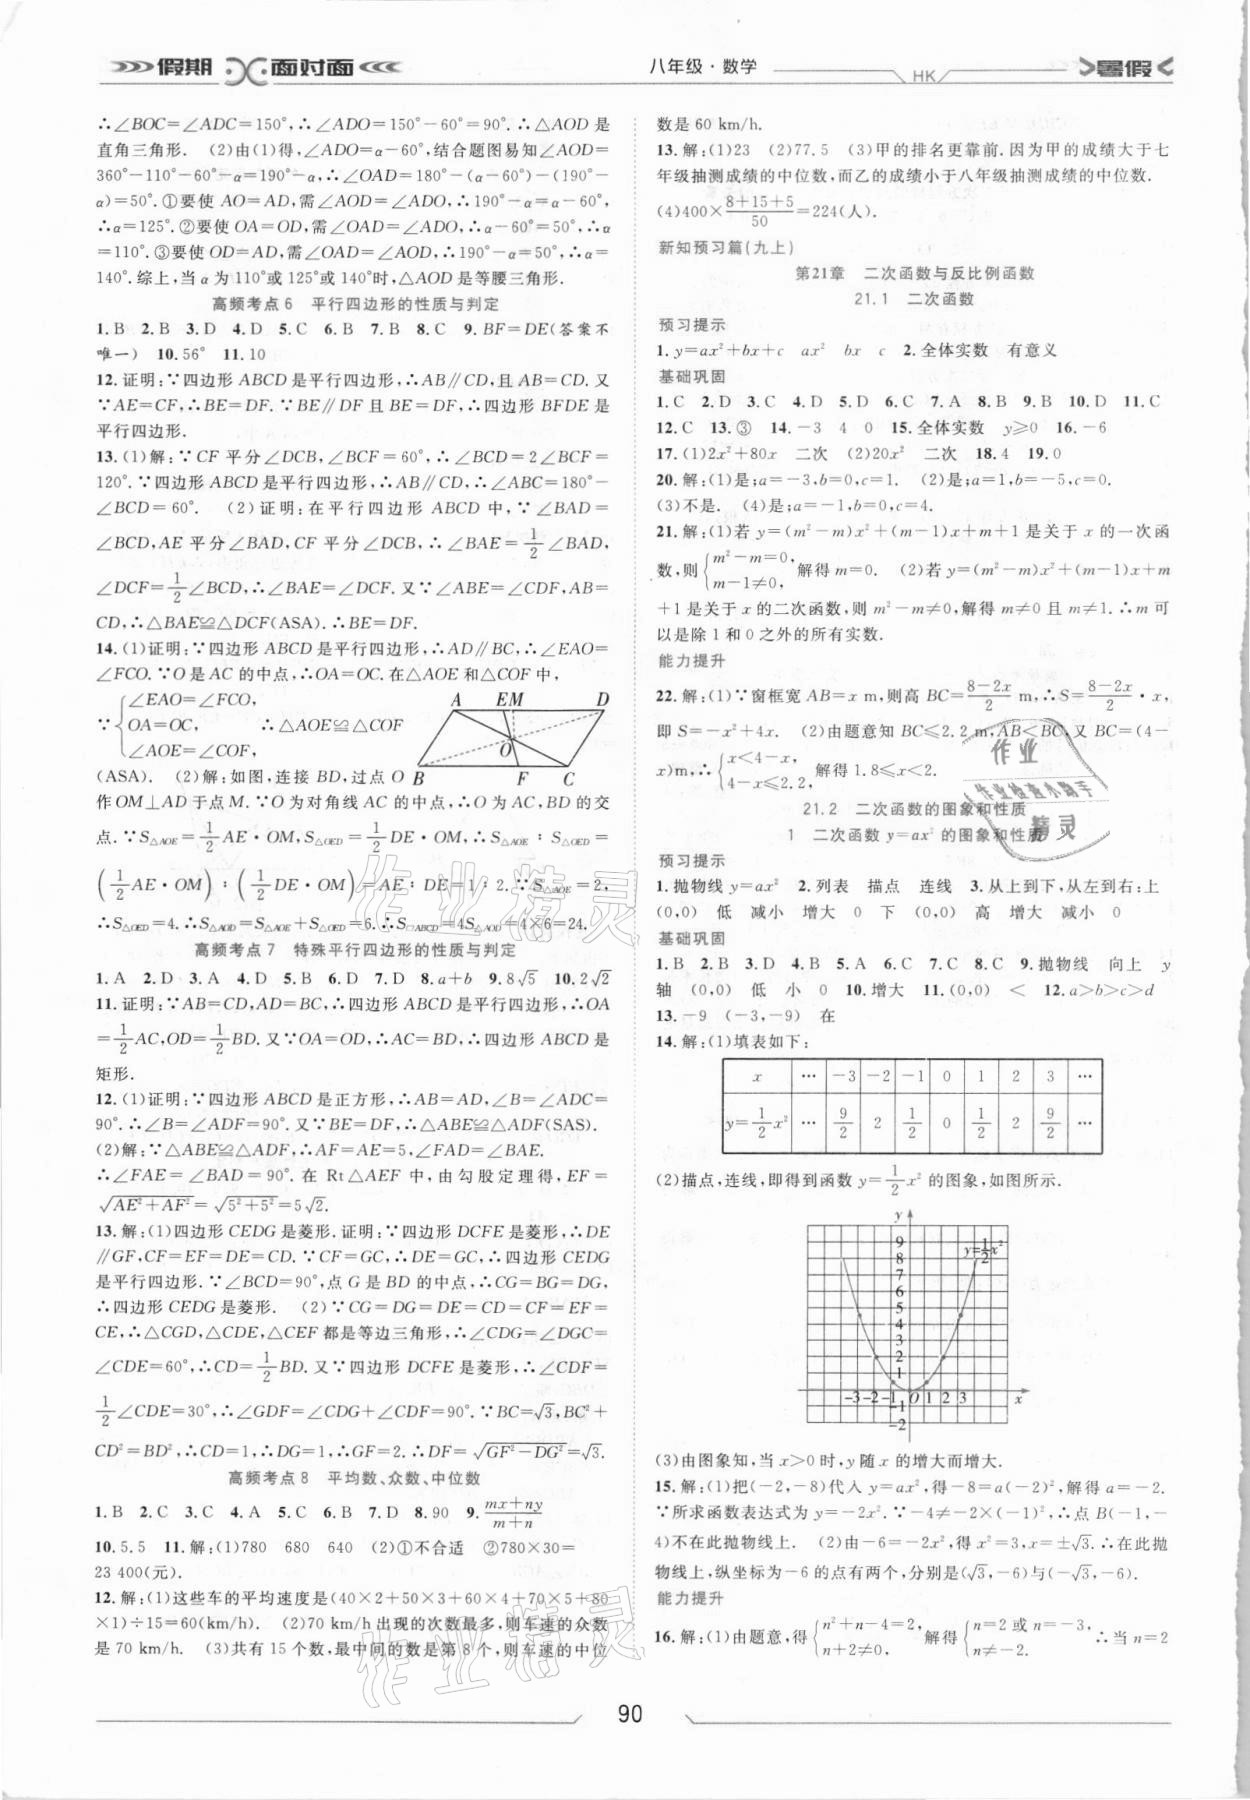 假期 面对面
八年级·数学
HK
暑假
∴∠BOC=∠ADC=150°,∴∠ADO=150°-60°=90°.∴△AOD是
直角三角形. (2)由(1)得,∠ADO=α-60°,结合题图易知∠AOD=
360°-110°-60°-α=190°-α,∴∠OAD=180°-(α-60°)-(190°-
α)=50°.①要使AO=AD,需∠AOD=∠ADO,∴190°-α=α-60°,
∴α=125°.②要使OA=OD,需∠OAD=∠ADO,∴α-60°=50°,∴α
=110°.③要使OD=AD,需∠OAD=∠AOD,∴190°-α=50°,∴α=
140°.综上,当α为110°或125°或140°时,△AOD是等腰三角形.
高频考点6 平行四边形的性质与判定
1.B 2.B 3.D 4.D 5.C 6.B 7.B 8.C 9.BF=DE(答案不
唯一) 10.56° 11.10
12.证明:∵四边形ABCD是平行四边形,∴AB∥CD,且AB=CD.又
∵AE=CF,∴BE=DF.∵BE∥DF且BE=DF,∴四边形BFDE是
平行四边形.
13.(1)解:∵CF平分∠DCB,∠BCF=60°,∴∠BCD=2∠BCF=
120°.∵四边形ABCD是平行四边形,∴AB∥CD,∴∠ABC=180°-
∠BCD=60°. (2)证明:在平行四边形ABCD中,∵∠BAD=
∠BCD,AE平分∠BAD,CF平分∠DCB,∴∠BAE=1/2∠BAD,
∠DCF=1/2∠BCD,∴∠BAE=∠DCF.又∵∠ABE=∠CDF,AB=
CD,∴△BAE≌△DCF(ASA).∴BE=DF.
14.(1)证明:∵四边形ABCD是平行四边形,∴AD∥BC,∴∠EAO=
∠FCO.∵O是AC的中点,∴OA=OC.在△AOE和△COF中,
∵{∠EAO=∠FCO,
OA=OC, ∴△AOE≌△COF
∠AOE=∠COF,
A EM D
O
B F C
(ASA). (2)解:如图,连接BD,过点O
作OM⊥AD于点M.∵O为对角线AC的中点,∴O为AC,BD的交
点.∵S△AOE=1/2AE·OM,S△OED=1/2DE·OM,∴S△AOE:S△OED=
(1/2AE·OM):(1/2DE·OM)=AE:DE=1:2.∵S△AOE=2,
∴S△OED=4.∴S△AOD=S△AOE+S△OED=6.∴S□ABCD=4S△AOD=4×6=24.
高频考点7 特殊平行四边形的性质与判定
1.A 2.D 3.A 4.D 5.B 6.D 7.D 8.a+b 9.8√5 10.2√2
11.证明:∵AB=CD,AD=BC,∴四边形ABCD是平行四边形,∴OA
=1/2AC,OD=1/2BD.又∵OA=OD,∴AC=BD,∴四边形ABCD是
矩形.
12.(1)证明:∵四边形ABCD是正方形,∴AB=AD,∠B=∠ADC=
90°.∴∠B=∠ADF=90°.又∵BE=DF,∴△ABE≌△ADF(SAS).
(2)解:∵△ABE≌△ADF,∴AF=AE=5,∠FAD=∠BAE.
∴∠FAE=∠BAD=90°.在Rt△AEF中,由勾股定理得,EF=
√(AE²+AF²)=√(5²+5²)=5√2.
13.解:(1)四边形CEDG是菱形.证明:∵四边形DCFE是菱形,∴DE
∥GF,CF=EF=DE=CD.∵CF=GC,∴DE=GC,∴四边形CEDG
是平行四边形.∵∠BCD=90°,点G是BD的中点,∴CG=BG=DG,
∴四边形CEDG是菱形. (2)∵CG=DG=DE=CD=CF=EF=
CE,∴△CGD,△CDE,△CEF都是等边三角形,∴∠CDG=∠DGC=
∠CDE=60°,∴CD=1/2BD.又∵四边形DCFE是菱形,∴∠CDF=
1/2∠CDE=30°,∴∠GDF=∠CDG+∠CDF=90°.∵BC=√3,BC²+
CD²=BD²,∴CD=1,∴DG=1,∴GF=2.∴DF=√(GF²-DG²)=√3.
高频考点8 平均数、众数、中位数
1.B 2.C 3.C 4.A 5.C 6.B 7.D 8.90 9.(mx+ny)/(m+n)
10.5.5 11.解:(1)780 680 640 (2)①不合适 ②780×30=
23 400(元).
12.解:(1)这些车的平均速度是(40×2+50×3+60×4+70×5+80
×1)÷15=60(km/h). (2)70 km/h出现的次数最多,则车速的众数
是70 km/h. (3)共有15个数,最中间的数是第8个,则车速的中位
数是60 km/h.
13.解:(1)23 (2)77.5 (3)甲的排名更靠前.因为甲的成绩大于七
年级抽测成绩的中位数,而乙的成绩小于八年级抽测成绩的中位数.
(4)400×(8+15+5)/50=224(人).
新知预习篇(九上)
第21章 二次函数与反比例函数
21.1 二次函数
预习提示
1.y=ax²+bx+c ax² bx c 2.全体实数 有意义
基础巩固
1.C 2.D 3.C 4.D 5.D 6.C 7.A 8.B 9.B 10.D 11.C
12.C 13.③ 14.-3 4 0 15.全体实数 y≥0 16.-6
17.(1)2x²+80x 二次 (2)20x² 二次 18.4 19.0
20.解:(1)是;a=-3,b=0,c=1. (2)是;a=1,b=-5,c=0.
(3)不是. (4)是;a=-1,b=0,c=4.
21.解:(1)若y=(m²-m)x²+(m-1)x+m+1是关于x的一次函
数,则{m²-m=0, m-1≠0, 解得m=0. (2)若y=(m²-m)x²+(m-1)x+m
+1是关于x的二次函数,则m²-m≠0,解得m≠0且m≠1.∴m可
以是除1和0之外的所有实数.
能力提升
22.解:(1)∵窗框宽AB=x m,则高BC=(8-2x)/2 m,∴S=(8-2x)/2·x,
即S=-x²+4x. (2)由题意知BC≤2.2 m,AB<BC,又BC=(4-
x)m,∴{x<4-x, 4-x≤2.2, 解得1.8≤x<2.
21.2 二次函数的图象和性质
1 二次函数y=ax²的图象和性质
预习提示
1.抛物线y=ax² 2.列表 描点 连线 3.从上到下,从左到右:上
(0,0) 低 减小 增大 0 下 (0,0) 高 增大 减小 0
基础巩固
1.B 2.B 3.D 4.B 5.A 6.C 7.C 8.C 9.抛物线 向上 y
轴 (0,0) 低 小 0 10.增大 11.(0,0) < 12.a>b>c>d
13.-9 (-3,-9) 在
14.解:(1)填表如下:
x … -3 -2 -1 0 1 2 3 …
y=1/2x² … 9/2 2 1/2 0 1/2 2 9/2 …
(2)描点,连线,即得到函数y=1/2x²的图象,如图所示.
y
9
8
7
6
5
4
3
2
1
y=1/2x²
-3 -2 -1 O 1 2 3 x
-1
-2
(3)由图象知,当x>0时,y随x的增大而增大.
15.解:(1)把(-2,-8)代入y=ax²,得-8=a(-2)²,解得a=-2.
∵所求函数表达式为y=-2x².∵-4≠-2×(-1)²,∴点B(-1,-
4)不在此抛物线上. (2)由-6=-2x²,得x²=3,x=±√3.∴此抛
物线上,纵坐标为-6的点有两个,分别是(√3,-6)与(-√3,-6).
能力提升
16.解:(1)由题意,得{n²+n-4=2, n+2≠0, 解得{n=2或n=-3, n≠-2. ∴当n=2
90
作业
作业检查小助手
精灵
作业精灵
作业精灵